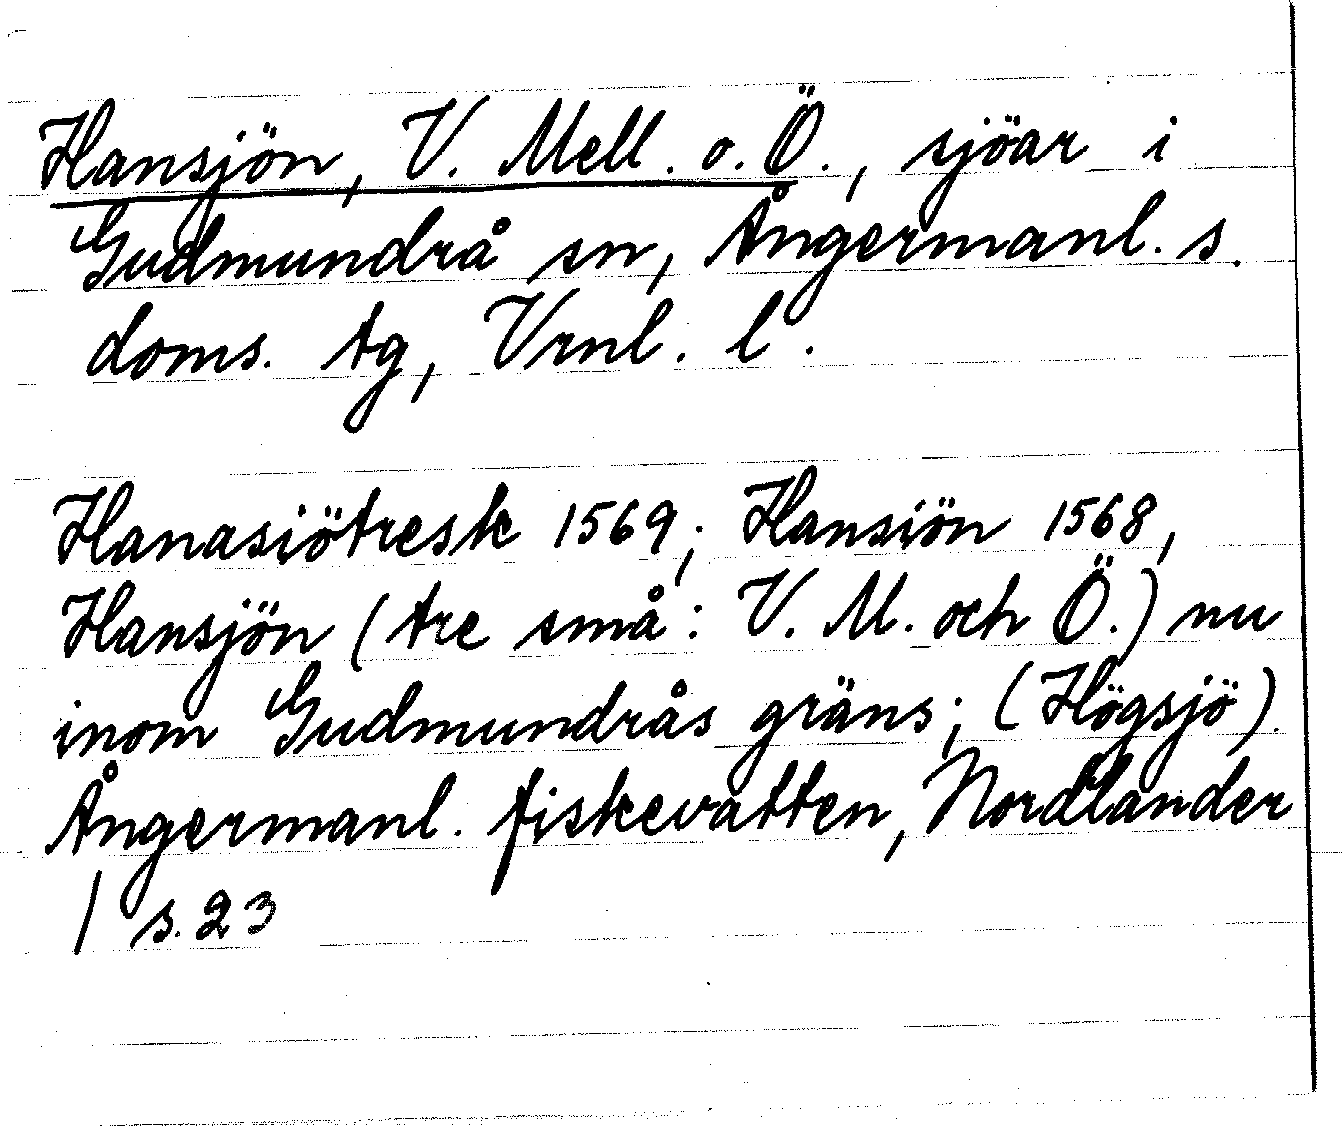 Hansjön, V. Mell. o. Ö., sjöar i
Gudmundrå sn, Ångermanl. s.
doms. tg, Vrnl. l.
Hanasiötresk 1569; Hansiön 1568,
Hansjön (tre små: V. M. och Ö.) nu
inom Gudmundrås gräns; (Högsjö).
Ångermanl. fiskevatten, Nordlander
/ s. 23